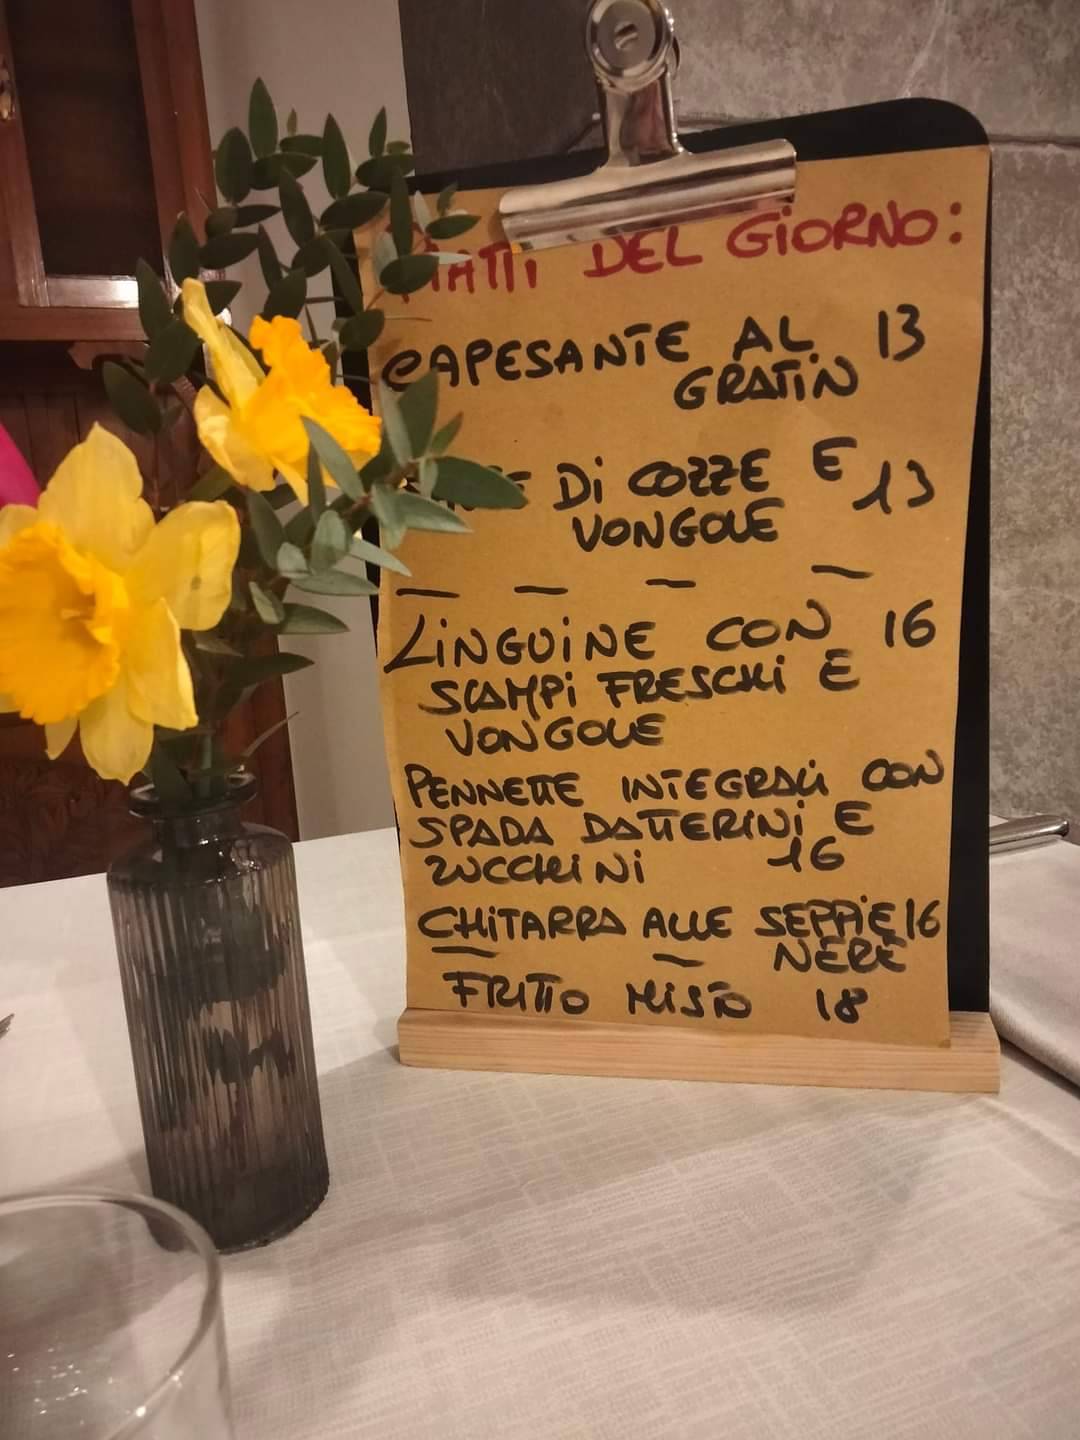 Piatti del giorno:
CAPESANTE AL 13
GRATiN
Di COZZE E 13
VONGOLE
LiNGUiNE CON 16
SCAMPi FRESCHi E
VONGOLE
PENNETTE INTEGRALi CON
SPADA DATTERINi E
ZUCCHiNi 16
CHiTARRA ALLE SEPPiE 16
NERE
FRITTO MISTO 18